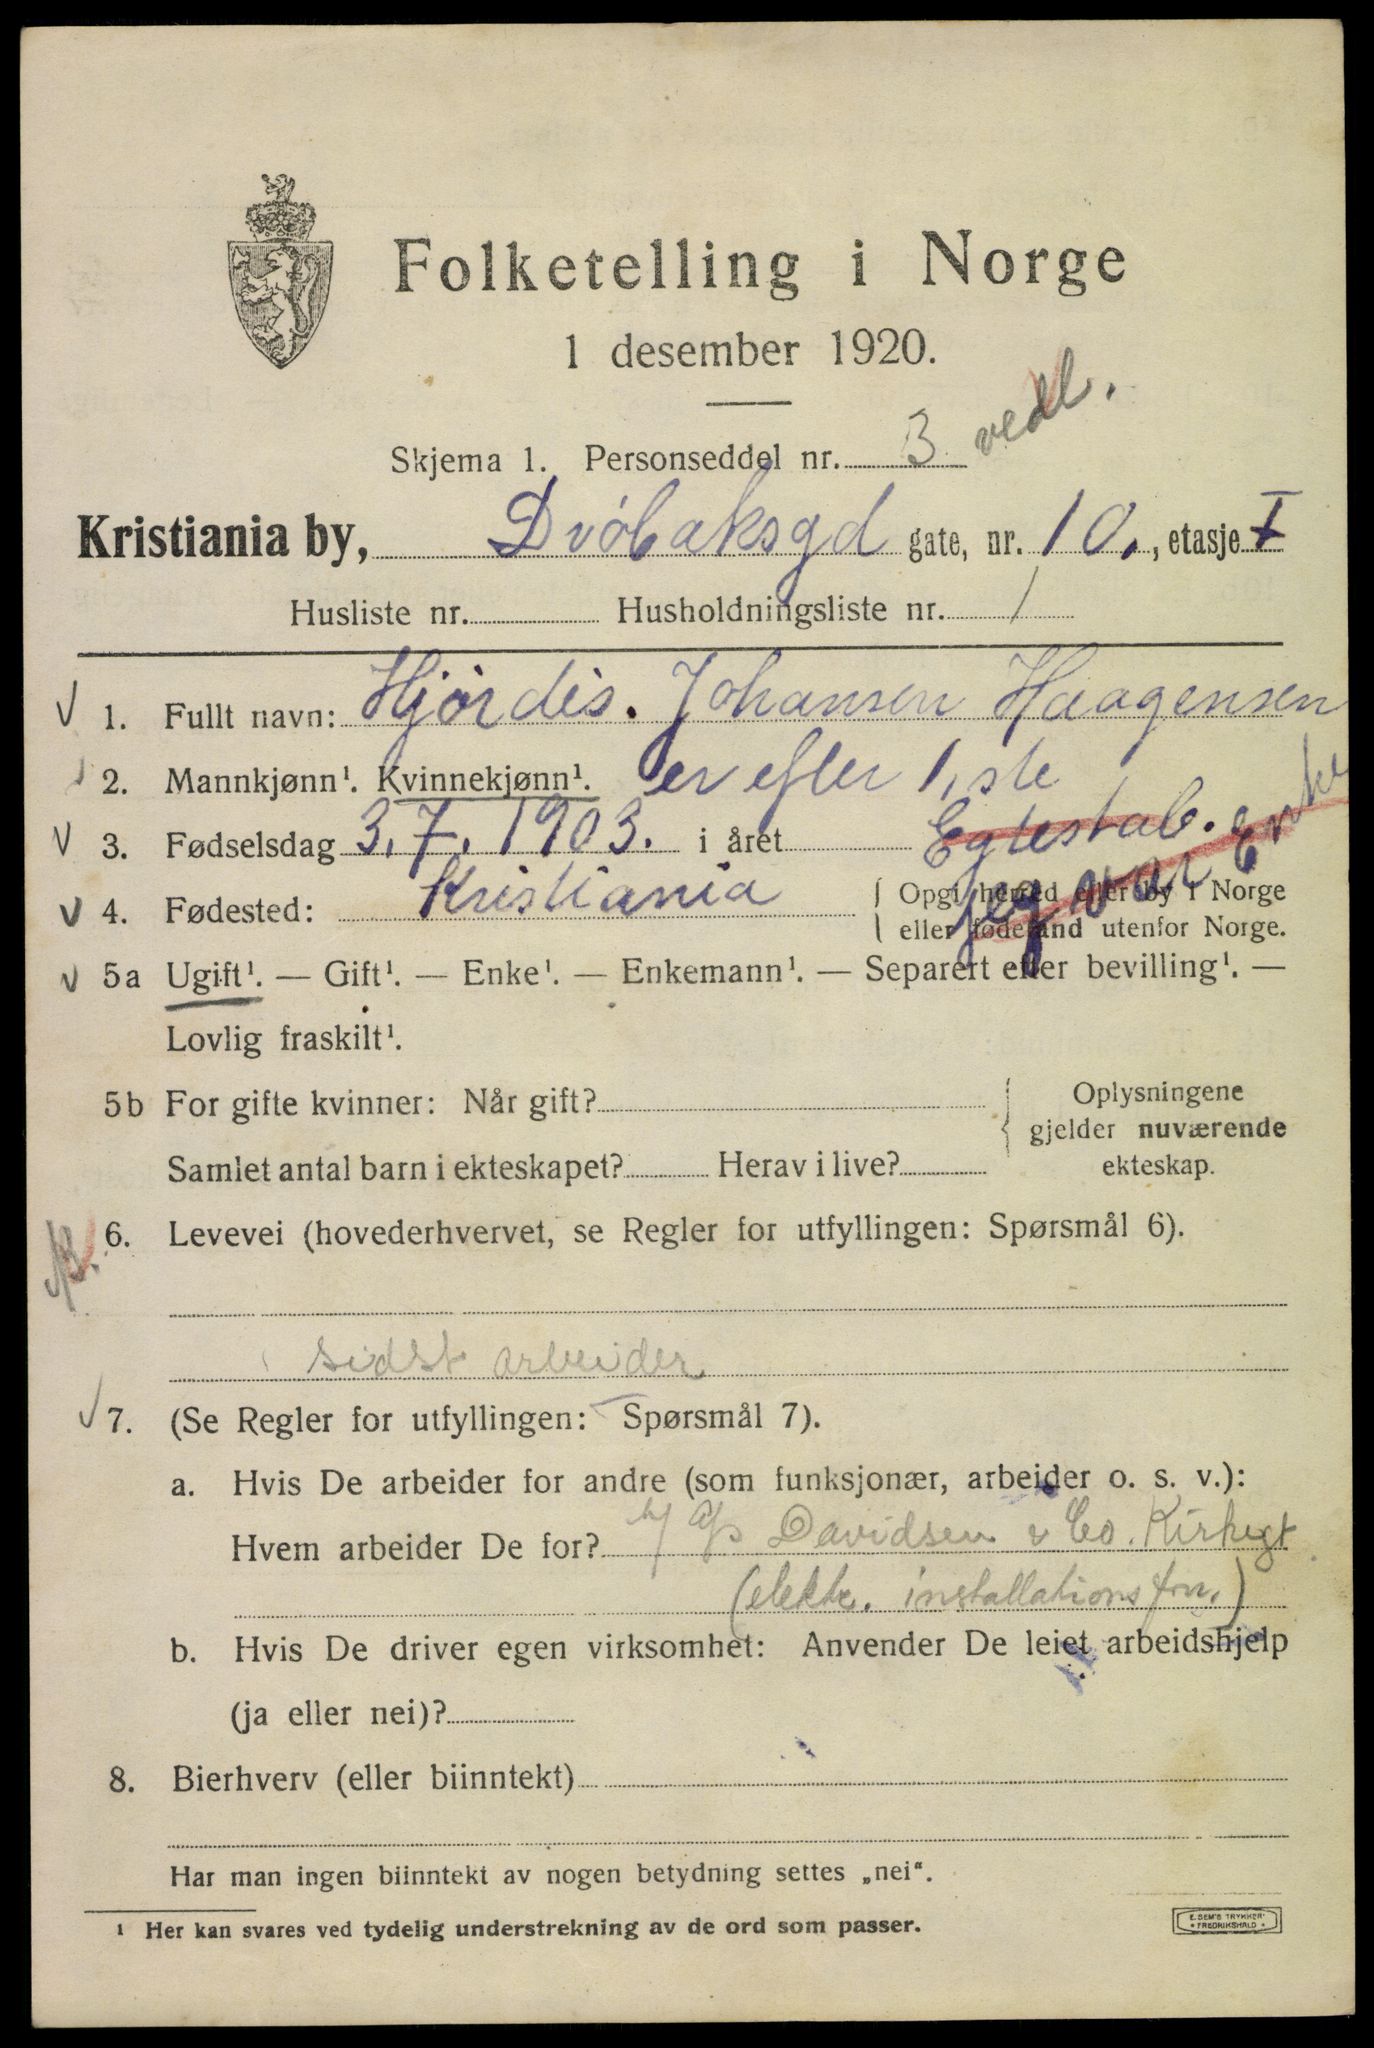 Folketelling i Norge
1 desember 1920.
Skjema 1. Personseddel nr. 3 vedl.
Kristiania by, Dröbaksgd gate, nr. 10., etasje I
Husliste nr. Husholdningsliste nr. 1
1. Fullt navn: Hjördis. Johansen Haagensen
2. Mannkjønn¹. Kvinnekjønn¹. er efter 1,ste
3. Fødselsdag 3.7.1903. i året Egtestab.
jeg var Enke
4. Fødested: Kristiania Opgi herred eller by i Norge
eller fødeland utenfor Norge.
5a Ugift¹. — Gift¹. — Enke¹. — Enkemann¹. — Separert efter bevilling¹. —
Lovlig fraskilt¹.
5b For gifte kvinner: Når gift? Oplysningene
gjelder nuværende
Samlet antal barn i ekteskapet? Herav i live? ekteskap.
6. Levevei (hovederhvervet, se Regler for utfyllingen: Spørsmål 6).
sidst arbeider
7. (Se Regler for utfyllingen: Spørsmål 7).
a. Hvis De arbeider for andre (som funksjonær, arbeider o. s. v.):
Hvem arbeider De for? A/S Davidsen & Co. Kirkegt
(elektr. installationsfrn.)
b. Hvis De driver egen virksomhet: Anvender De leiet arbeidshjelp
(ja eller nei)?
8. Bierhverv (eller biinntekt)
Har man ingen biinntekt av nogen betydning settes „nei“.
¹ Her kan svares ved tydelig understrekning av de ord som passer.
E. SEM'S TRYKKERI
* FREDRIKSHALD *